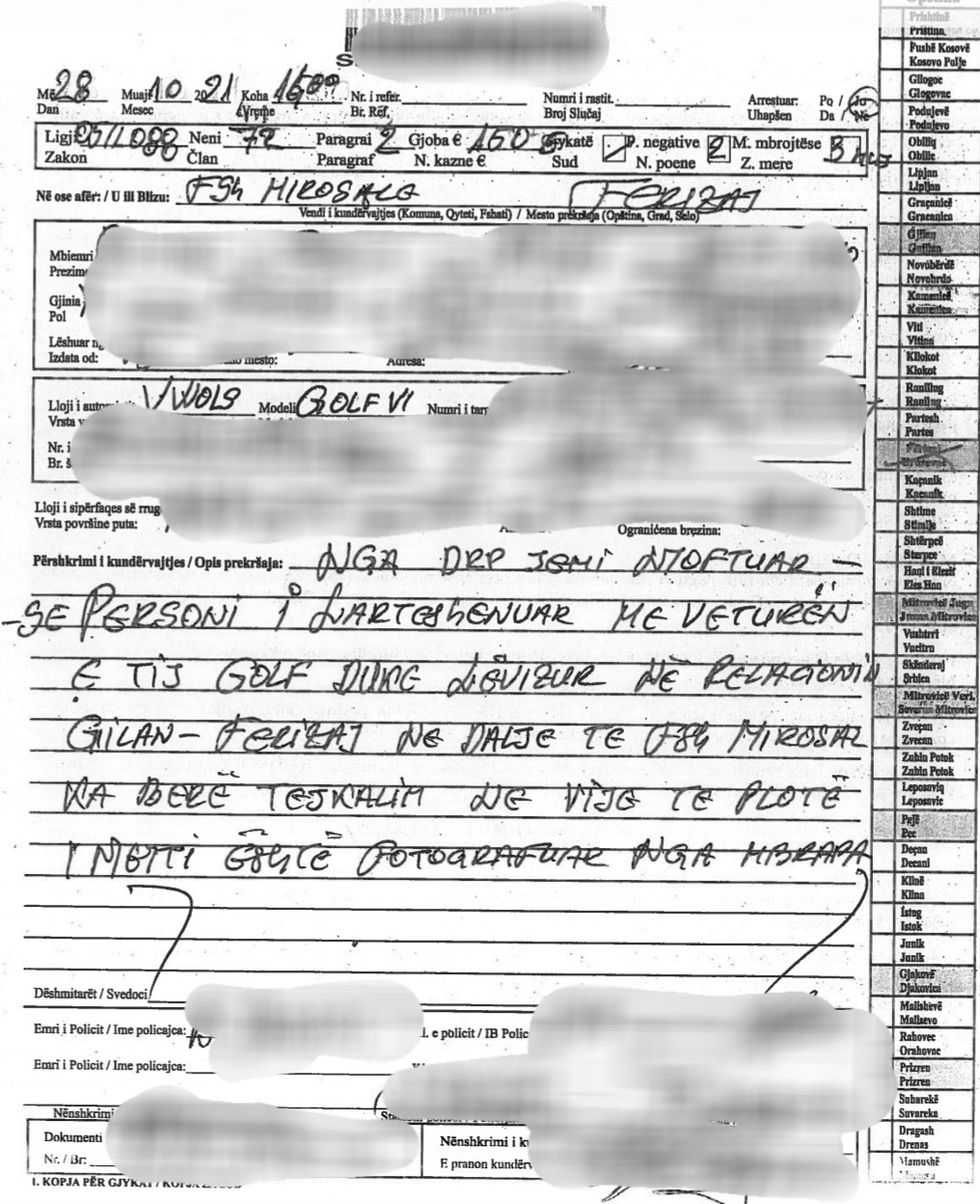 Më 28 Muaji 10 2021 Koha 1500 Nr. i refer. Numri i rastit. Arrestuar: Po / Jo
Dan Mesec Vreme Br. Ref. Broj Slučaj Uhapšen Da / Ne
Ligji 05/L088 Neni Paragrafi 2 Gjoba € 150 Gjykatë P. negative 2 M. mbrojtëse 3
Zakon Član Paragraf N. kazne € Sud N. poene Z. mere
Në ose afër: / U ili Blizu: FSH MIROSALE FERIZAJ
Vendi i kundërvajtjes (Komuna, Qyteti, Fshati) / Mesto prekršaja (Opština, Grad, Selo)
Mbiemri
Prezime
Gjinia
Pol
Lëshuar
Izdata od: mesto: Adresa:
Lloji i VWOLS Modeli GOLF VI Numri i
Vrsta
Nr. i
Br.
Lloji i sipërfaqes së rrug
Vrsta površine puta: Ograničena brzina:
Përshkrimi i kundërvajtjes / Opis prekršaja: NGA DRP JEMI NJOFTUAR –
- SE PERSONI I LARTESHENUAR ME VETURËN
E TIJ GOLF DUKE LËVIZUR NË RELACIONIN
GJILAN – FERIZAJ NE DALJE TE FSH MIROSAL
KA BERË TEJKALIM NE VIJE TE PLOTË
I NJEJTI ËSHTË FOTOGRAFUAR NGA MBRAPA
Dëshmitarët / Svedoci
Emri i Policit / Ime policajca: I. e policit / IB Polic
Emri i Policit / Ime policajca:
Nënshkrimi
Dokumenti Nënshkrimi i k
Nr. / Br: E pranon kundërv
1. KOPJA PËR GJYKAT
Prishtinë
Priština
Fushë Kosovë
Kosovo Polje
Gllogoc
Glogovac
Podujevë
Podujevo
Obiliq
Obilic
Lipjan
Lipljan
Graçanicë
Gracanica
Gjilan
Gnjilan
Novobërdë
Novobrdo
Kamenicë
Kamenica
Viti
Vitina
Kllokot
Klokot
Ranillug
Ranilug
Partesh
Partes
Kaçanik
Kacanik
Shtime
Stimlje
Shtërpcë
Sterpce
Hani i Elezit
Elez Han
Mitrovicë Jug.
Juzna Mitrovica
Vushtrri
Vucitrn
Skënderaj
Srbica
Mitrovicë Veri.
Severna Mitrovica
Zveçan
Zvecan
Zubin Potok
Zubin Potok
Leposaviq
Leposavic
Pejë
Pec
Deçan
Decani
Klinë
Klina
Istog
Istok
Junik
Junik
Gjakovë
Djakovica
Malishevë
Malisevo
Rahovec
Orahovac
Prizren
Prizren
Suharekë
Suvareka
Dragash
Drenas
Mamushë